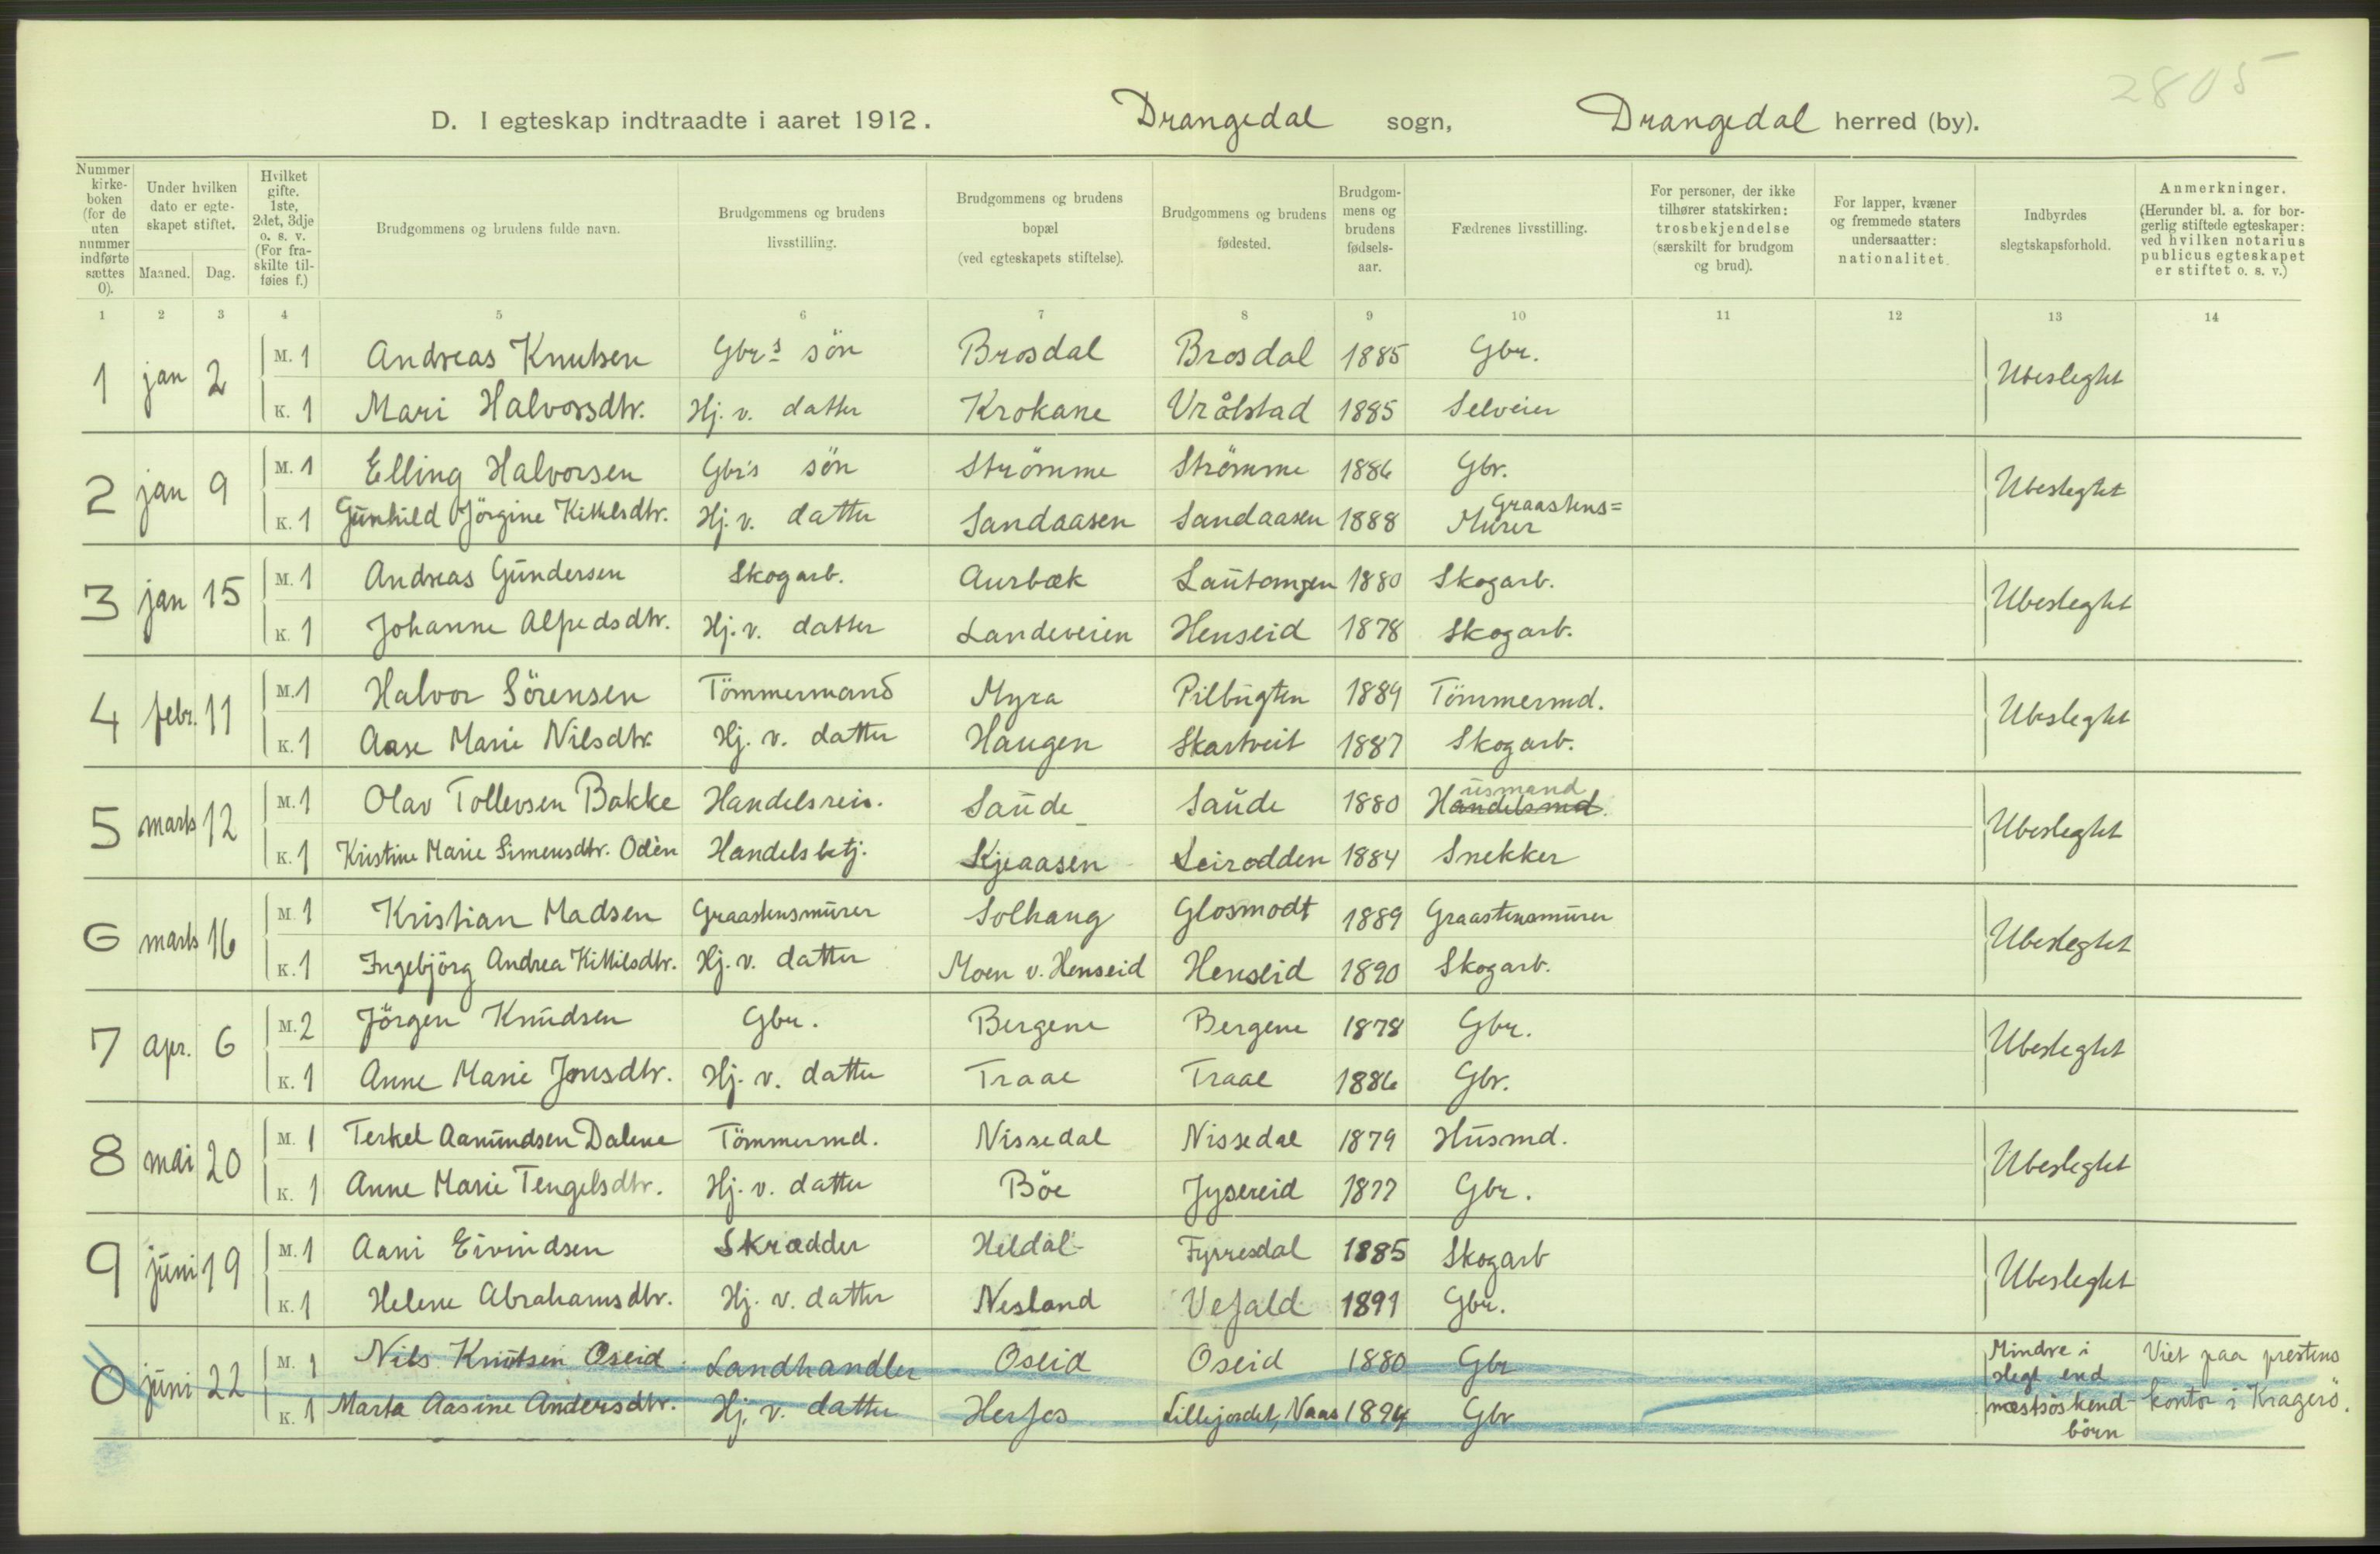 2805
D. I egteskap indtraadte i aaret 1912. Drangedal sogn, Drangedal herred (by).
Nummer kirke-boken (for de uten nummer indførte sættes 0). Under hvilken dato er egte-skapet stiftet. Maaned. Dag. Hvilket gifte. 1ste, 2det, 3dje o. s. v. (For fra-skilte til-føies f.) Brudgommens og brudens fulde navn. Brudgommens og brudens livsstilling. Brudgommens og brudens bopæl (ved egteskapets stiftelse). Brudgommens og brudens fødested. Brudgom-mens og brudens fødsels-aar. Fædrenes livsstilling. For personer, der ikke tilhører statskirken: trosbekjendelse (særskilt for brudgom og brud). For lapper, kvæner og fremmede staters undersaatter: nationalitet. Indbyrdes slegtskapsforhold. Anmerkninger. (Herunder bl. a. for bor-gerlig stiftede egteskaper: ved hvilken notarius publicus egteskapet er stiftet o. s. v.)
1 2 3 4 5 6 7 8 9 10 11 12 13 14
1 jan 2 M. 1 Andreas Knutsen Gbr.s sön Brosdal Brosdal 1885 Gbr. Ubeslegtet
K. 1 Mari Halvorsdtr. Hj. v. datter Krokane Vrålstad 1885 Selveier
2 jan 9 M. 1 Elling Halvorsen Gbr's sön Strömme Strömme 1886 Gbr. Ubeslegtet
K. 1 Gunhild Jörgine Kittelsdtr. Hj. v. datter Sandaasen Sandaasen 1888 Graastens=
Murer
3 jan 15 M. 1 Andreas Gundersen Skogarb. Aurbæk Lautangen 1880 Skogarb. Ubeslegtet
K. 1 Johanne Alfredsdtr. Hj. v. datter Landeveien Henseid 1878 Skogarb.
4 febr. 11 M. 1 Halvor Sörensen Tömmermand Myra Pilbugten 1889 Tömmermd. Ubeslegtet
K. 1 Aase Marie Nilsdtr. Hj. v. datter Haugen Skartveit 1887 Skogarb.
5 marts 12 M. 1 Olav Tollevsen Bakke Handelsreis. Saude Saude 1880 Handelsmd. usmand Ubeslegtet
K. 1 Kristine Marie Simensdtr. Odèn Handelsbetj. Kjeaasen Leirodden 1884 Snekker
6 marts 16 M. 1 Kristian Madsen Graastensmurer Solhaug Glosmodt 1889 Graastensmurer Ubeslegtet
K. 1 Ingebjörg Andrea Kittilsdtr. Hj. v. datter Moen v. Henseid Henseid 1890 Skogarb.
7 apr. 6 M. 2 Jörgen Knudsen Gbr. Bergene Bergene 1878 Gbr. Ubeslegtet
K. 1 Anne Marie Jonsdtr. Hj. v. datter Traae Traae 1886 Gbr.
8 mai 20 M. 1 Terkel Aanundsen Dalene Tömmermd. Nissedal Nissedal 1879 Husmd. Ubeslegtet
K. 1 Anne Marie Tengelsdtr. Hj. v. datter Böe Jysereid 1877 Gbr.
9 juni 19 M. 1 Aani Eivindsen Skrædder Heldal Fyrresdal 1885 Skogarb Ubeslegtet
K. 1 Helene Abrahamsdtr. Hj. v. datter Nesland Vefald 1891 Gbr.
0 juni 22 M. 1 Nils Knutsen Oseid Landhandler Oseid Oseid 1880 Gbr Mindre i slegt end næstsöskend-börn Viet paa prestens kontor i Kragerö.
K. 1 Marta Aasine Andersdtr. Hj. v. datter Herfos Lillejordet, Naas 1894 Gbr